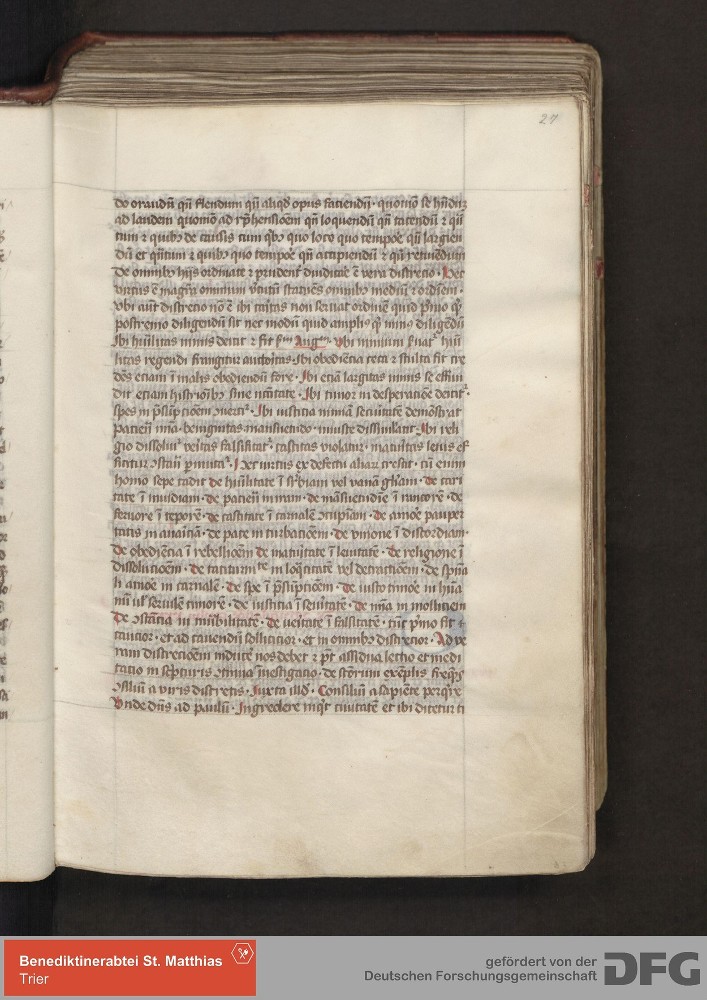 27
do orandū qn̄ flendum qn̄ aliqd opus faciendū · quomō se hn̄dū
ad laudem quomō ad rep̄hensioēm qn̄ loquendū qn̄ tacendū ⁊ qn̄
tum ⁊ quibꝫ de causis cum qbꝫ quo loco quo tempoꝛe qn̄ largien
dū et qn̄tum ⁊ quibꝫ quo tempoꝛe qn̄ accipiendū ⁊ qn̄ retinēdum
De omnibꝫ hijs ordinate ⁊ prudent diuidicāe ē vera discretio · Hec
virtus ē magr̄a omnium v̄tutū statuēs omnibꝫ mediū ⁊ ordiēm ·
Vbi aūt discretio nō ē ibi caꝛitas non seruat ordinē quid pͥmo qͥd
postremo diligendū sit nec modū quid ampliꝰ qͥd minꝰ diligēdū
Ibi hūilitas nimis deicit ⁊ fit Augᵐ · Vbi nimium ſuatᷣ hūi
litas regendi frangitur auctoꝛitas · Ibi obediēcia ceca ⁊ stulta fit cre
dēs eciam ī malis obediendū foꝛe · Ibi eciā largitas nimis se effun
dit eciam histrionibꝫ sine nc̄citate · Ibi timoꝛ in desperacōem deicitᷣ ·
spes in p̄supcōem ꝯuertitᷣ · Ibi iusticia nimiā seuitatē demōstrat
pacien̄ nīa · benignitas mansuetudo · iniuste dissimulant · Ibi reli
gio dissoluitᷣ veritas falsificatᷣ · castitas violatur · matuꝛitas leuis eff
ficitur ꝯstan̄ pͥmitatᷣ · Hec virtus ex defectu aliaꝝ crescit · cū enim
homo sepe cadit de hūilitate ī supbiam vel vanā glīam · de cari
tate ī inuidiam · de pacien̄ in iram · de māsuetudīe ī rancoꝛē · de
feruoꝛe ī tepoꝛē · de castitate ī carnalē ꝯcupīam · de amoꝛe pauper
tatis in auaꝛitiā · de pace in turbacōem · de vnione ī discoꝛdiam ·
de obediēcia ī rebellioēm de matuꝛitate ī leuitatē · de religione ī
dissolucōem · de taciturniᵗᵉ in loqͣcitatē vel detractōem · de spūa
li amoꝛe in carnalē · de spe ī p̄supcōem · de iusto timoꝛe in hūa
nū ul seruilē timoꝛē · de iusticia ī seuitatē · de mīa in molliciem
De ꝯstācia in mūbilitatē · de veritate ī falsitatē · tūc pͥmo fit ⁊
cauctoꝛ · et ad cauendū sollicitioꝛ · et in omnibꝫ discrecioꝛ · Ad ve
ram discrecōem inducͤe nos debet ⁊ p̄t assidua lectio et medi
tacio in scp̄turis ꝯtinua īuestigatio · de sc̄oꝛum exēplis freqͥs
ꝯsiliū a viris discretis · Iuxta illd · Consiliū a sapiēte perqͥre
Vnde dn̄s ad paulū · Ingredere inqͥt ciuitatē et ibi dicetur ti
Benediktinerabtei St. Matthias
Trier
gefördert von der
Deutschen Forschungsgemeinschaft
DFG